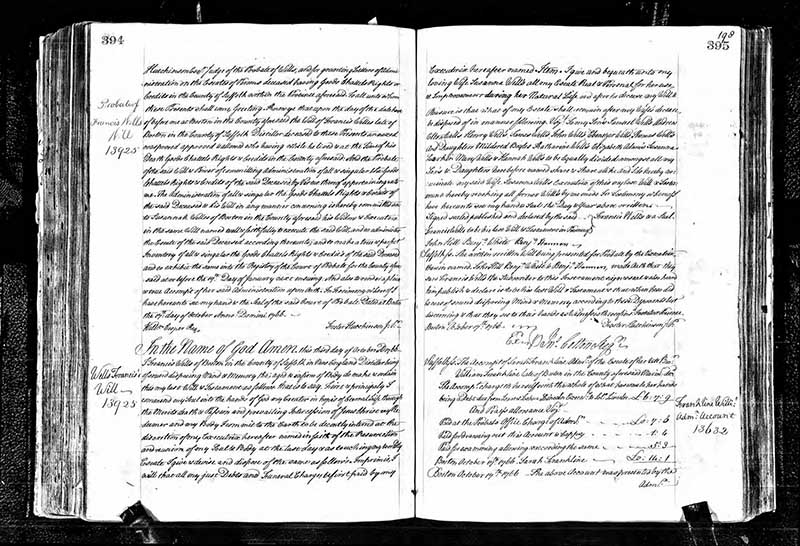 394
Hutchinson Esqr. Judge of the Probate of Wills, and for granting Letters of Admi
nistration on the Estates of Persons deceased having Goods Chattels Rights or
Credits in the County of Suffolk within the Province aforesaid. To all unto whom
these Presents shall come Greeting. Know ye that upon the day of the date here
of before me at Boston in the County aforesaid the Will of Francis Wells late of
Boston in the County of Suffolk Distiller deceased to these Presents annexed
was proved approved & allowed who having while he lived & at the time of his
Death Goods Chattels Rights or Credits in the County aforesaid And the Probate
of the said Will & Power of committing Administration of all & singular the Goods
Chattels Rights & Credits of the said Deceased by Virtue thereof appertaining unto
me. The Administration of all & singular the Goods Chattels Rights & Credits of
the said Deceased & his Will in any manner concerning is hereby committed un
to Susannah Wells of Boston in the County aforesaid his Widow & Executrix
in the same Will named well & faithfully to execute the said Will, and to administer
the Estate of the said Deceased according thereunto; and to make a true & perfect
Inventory of all & singular the Goods Chattels Rights & Credits of the said Deceased
and to exhibit the same into the Registry of the Court of Probate for the County afore
said at or before the day of January next ensuing And also to render a plain
& true Accompt of her said Administration upon Oath. In Testimony whereof I
have hereunto set my hand & the Seal of the said Court of Probate. Dated at Boston
the day of October Anno Domini 1766.
Foster Hutchinson J. Pro.
Probate of
Francis Wells
Will
13925
In the Name of God Amen. this third day of October
I Francis Wells of Boston in the County of Suffolk in New England Distiller being
of sound disposing Mind & Memory this do make & ordain
this my last Will & Testament as follows that is to say. First & principally I
commend my Soul into the hands of God my Creator in hopes of Eternal Life through
the Merits Death & Passion and prevailing Intercession of Jesus Christ my Re
deemer and my Body I commit to the Earth to be decently interred at the
discretion of my Executrix hereafter named in faith of the Resurrection
and reunion of my Soul & Body at the last day & as touching my worldly
Estate I give & devise and dispose of the same as follows Imprimis I
will that all my just Debts and Funeral Charges be first paid by my
Wells Francis's
Will
13925
198
395
Executrix hereafter named Item. I give and bequeath unto my
loving Wife Susanna Wells all my Estate Real & Personal for her use
& Improvement during her Natural Life and after her decease my Will &
Pleasure is that what of my Estate shall remain after my Wifes decease
be disposed of in manner following Viz. To my Sons Samuel Wells
Wells Henry Wells James Wells John Wells Ebenezer Wells Thomas Wells
and Daughters Mildered Boyles Katharine Wells Elizabeth Adams Susanna
Mary Wells & Hannah Wells to be equally divided amongst all my
Sons & Daughters before named share & share alike and I do hereby no
minate my said Wife Susanna Wells Executrix of this my last Will & Testa
ment hereby revoking all former Wills by me made In Testimony whereof I
have hereunto set my hand & Seal the Day & Year above written
Signed sealed published and declared by the said Francis Wells & a Seal
Francis Wells to be his last Will & Testament in Presence of
John Hill Benja. White Benja.
Suffolk Ss. The within written Will being presented for Probate by the Executrix
therein named. John Hill Benja. White & Benja. made Oath that they
saw Francis Wells the Subscriber to this Instrument sign & seal & also heard
him publish & declare it to be his last Will & Testament & that when he so did
he was of sound disposing Mind & Memory according to these Deponents best
discerning & that they set to their hands as Witnesses thereof in the said Testators Presence
Boston October 1766. Foster Hutchinson J. Pro.
Exd. Jno. Cotton Regr.
Suffolk Ss. The Accompt of Sarah Franklin Admx. of the Estate of her late Husbd.
William Franklin late of Boston in the County aforesaid deceased
The Accomptant chargeth herself with the whole of what came to her hands
being £6.7.9
And Prays allowance Viz.
Paid at the Probate Office Charge of Admn. £0.7.6
Paid for drawing out this Account & Copy
Paid for examining allowing & recording the same
Boston October 1766. Sarah Franklin
Boston October 1766. The above Account was presented by the
Admx.
Franklin Willm.
Admx. Account
13632